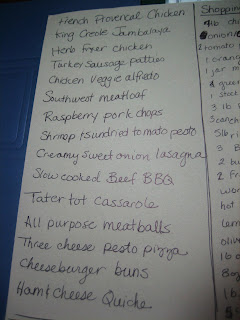 French Provencal Chicken
King Creole Jambalaya
Herb Fryer chicken
Turkey Sausage patties
Chicken Veggie alfredo
Southwest meatloaf
Raspberry pork chops
Shrimp & sundried tomato pesto
Creamy sweet onion lasagna
Slow cooked Beef BBQ
Tater tot casserole
All purpose meatballs
Three cheese pesto pizza
cheeseburger buns
Ham & cheese Quiche
Shopping
4 lb
onion
2 tomato
1 oran
1 jar m
1 stock
3 lb
5 lb
2 bu
hot
olive
1 lb